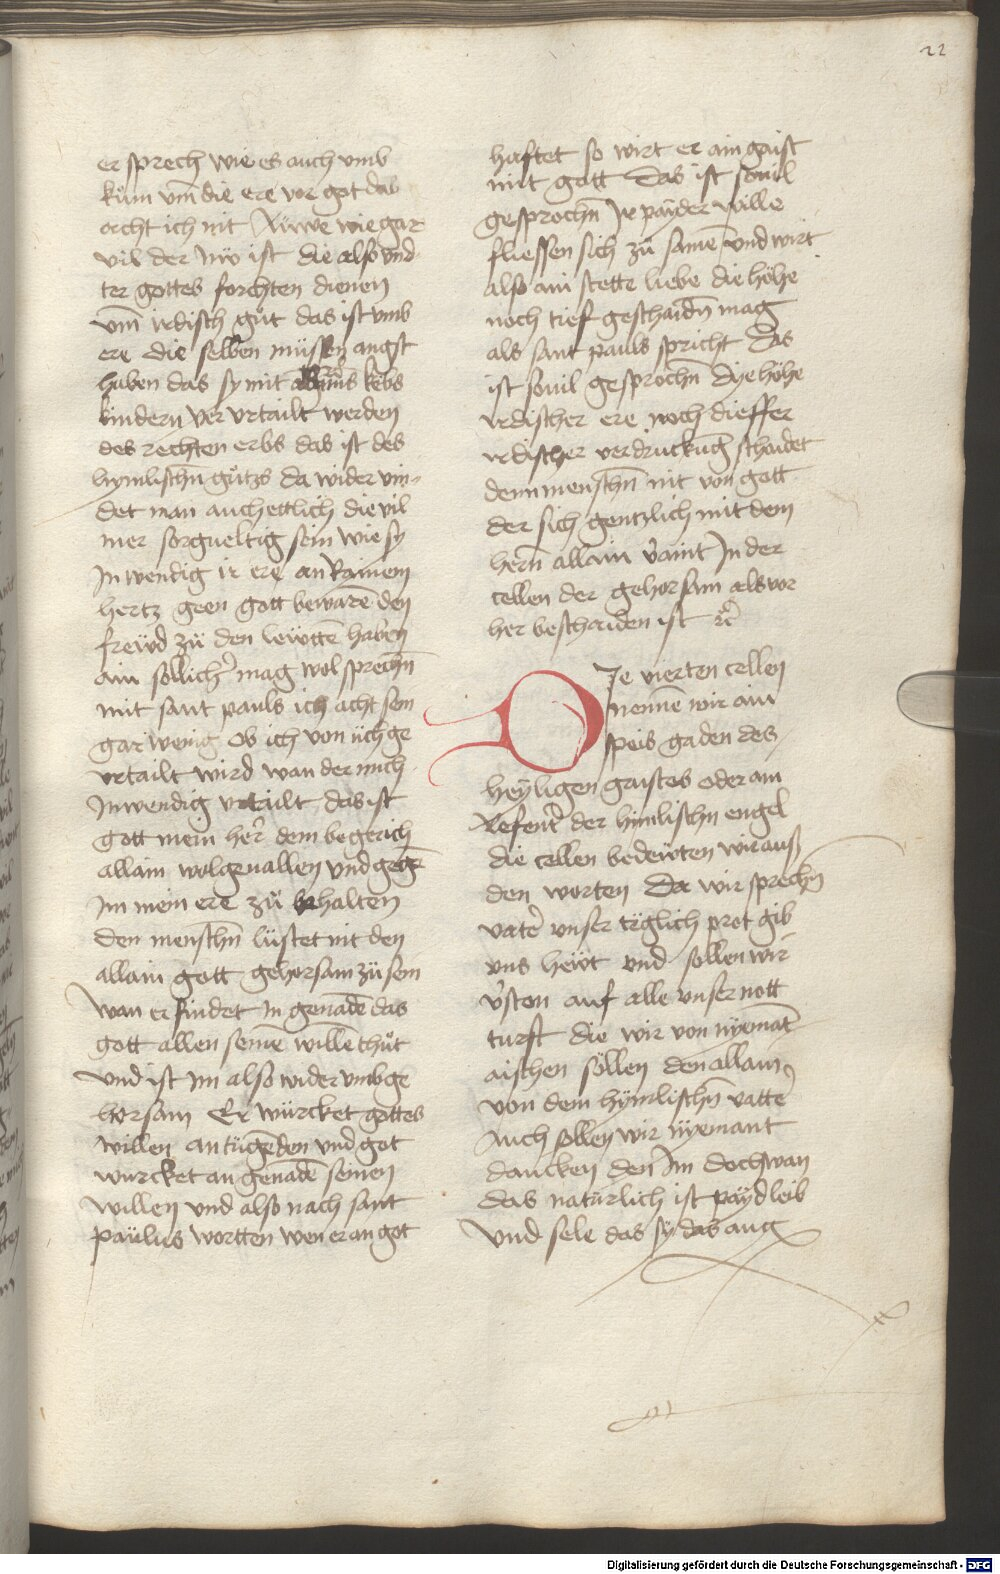 22
er sprech wie es auch vmb
kům vm̄ die ere vor got das
acht ich nit Awwe wie gar
vil der nw ist die also vnd
ter gottes forchten dienen
vm̄ irdisch gůt das ist vmb
ere die selben müssen angst
haben das sy mit kebs
kindern ver vrtailt werden
des rechten erbs das ist des
hymlischn̄ gůtzs da wider vin-
det man auch ettlich die vil
mer sorgueltig sein wie sy
Inwendig ir ere an Rainem
hertz geen gott bewaren̄ den
frewd zů den lewttē haben
ain sőllich' mag wol sprechn̄
mit sant pauls ich acht sein
gar wenig Ob ich von üch ge
vrtailt wird wan der mich
Inwendig vrtailt das ist
gott mein her̄ dem beger ich
allain wolgeuallen vnd gegē
Im mein ere zů behalten
den menschn̄ lüstet nit den
allain gott gehorsam zů sein
wan er findet In genadē das
gott allen seinē willē thůt
vnd ist im also widervmb ge
horsam Er würcket gottes
willen an tugendēn vnd got
wurcket an genadē seinen
willen vnd also nach sant
paülus wortten wen er an got
haftet so wirt er ain gaist
mit gott Das ist souil
gesprochn̄ Ir payder wille
fliessen sich zů samē vnd wirt
also ain stette liebe die höhe
noch tief geschaidn̄ mag
als sant pauls spricht Das
ist souil gesprochn̄ Dye höhe
irdischer ere noch dieffer
irdischer verdruckūg schaidet
denn menschn̄ nit von gott
der sich gentzlich mit dem
hern̄ allain v̓aint In der
cellen der gehorsam als vor
her beschaiden ist rc̄
DIe vierten cellen
nennē wir ain
speis gaden des
heyligen gaistes oder ain
Refent' der himlischn engel
die cellen bedewten wir auß
den worten Da wir sprechn̄
vate' vnser täglich prot gib
vns hewt vnd sollen wir
v̓sten auf alle vnser nott
turft die wir von nyemāt
aischen söllen den allain
von dem hymlischn̄ vatte'
Auch sollen wir nyemant
dancken den Im doch wan
das natürlich ist payd leib
vnd sele das sy das aug
Digitalisierung gefördert durch die Deutsche Forschungsgemeinschaft - DFG